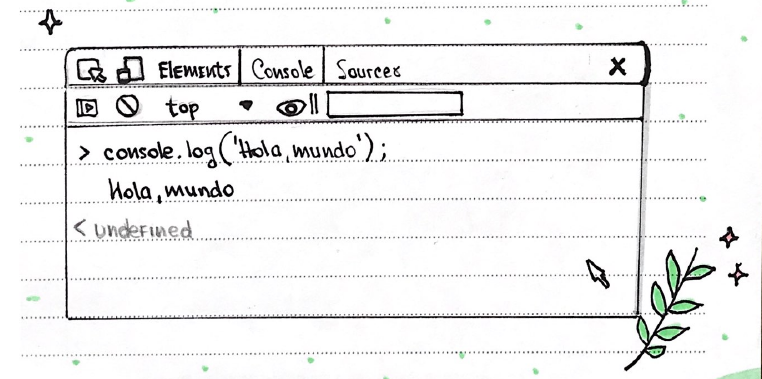 Elements Console Sources X
top
> console.log('Hola, mundo');
Hola, mundo
< undefined